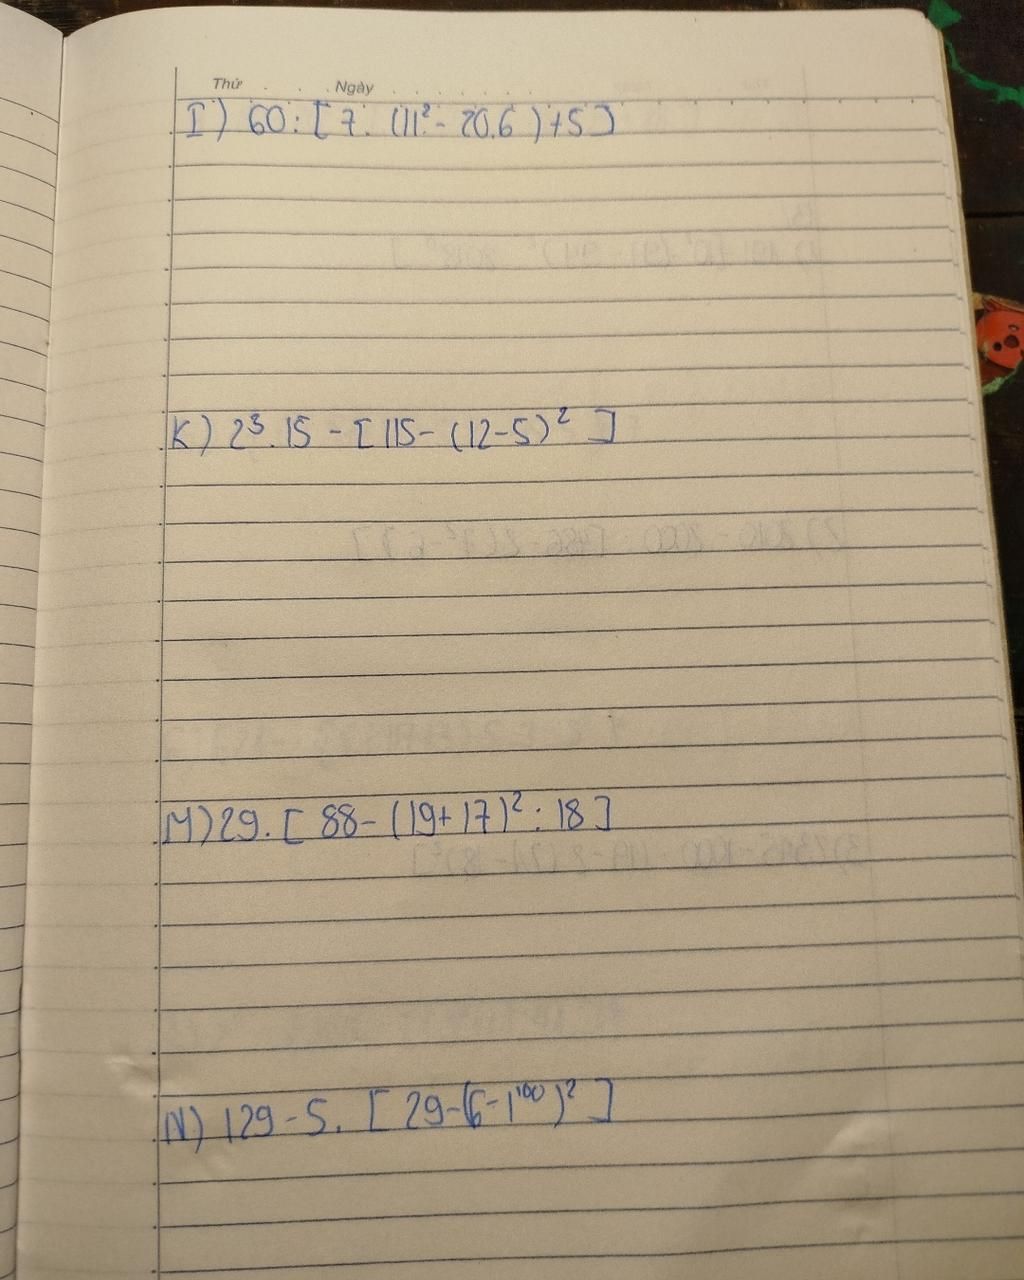 Thứ . . . Ngày . . . . . . .
I) 60 : [ 7. (11² - 20.6 ) + 5 ]
K) 2³. 15 - [ 115 - (12-5)² ]
M) 29. [ 88 - (19+17)² : 18 ]
N) 129 - 5. [ 29-(6-1¹⁰⁰)² ]